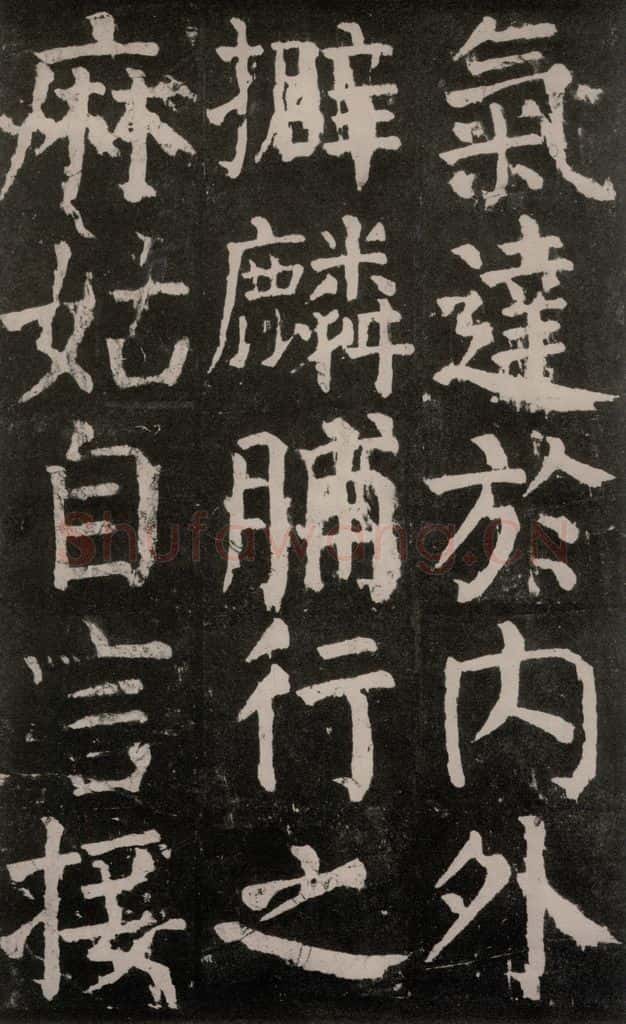 氣達於內外
擗麟脯行之
麻姑自言接
Shufawang.CN